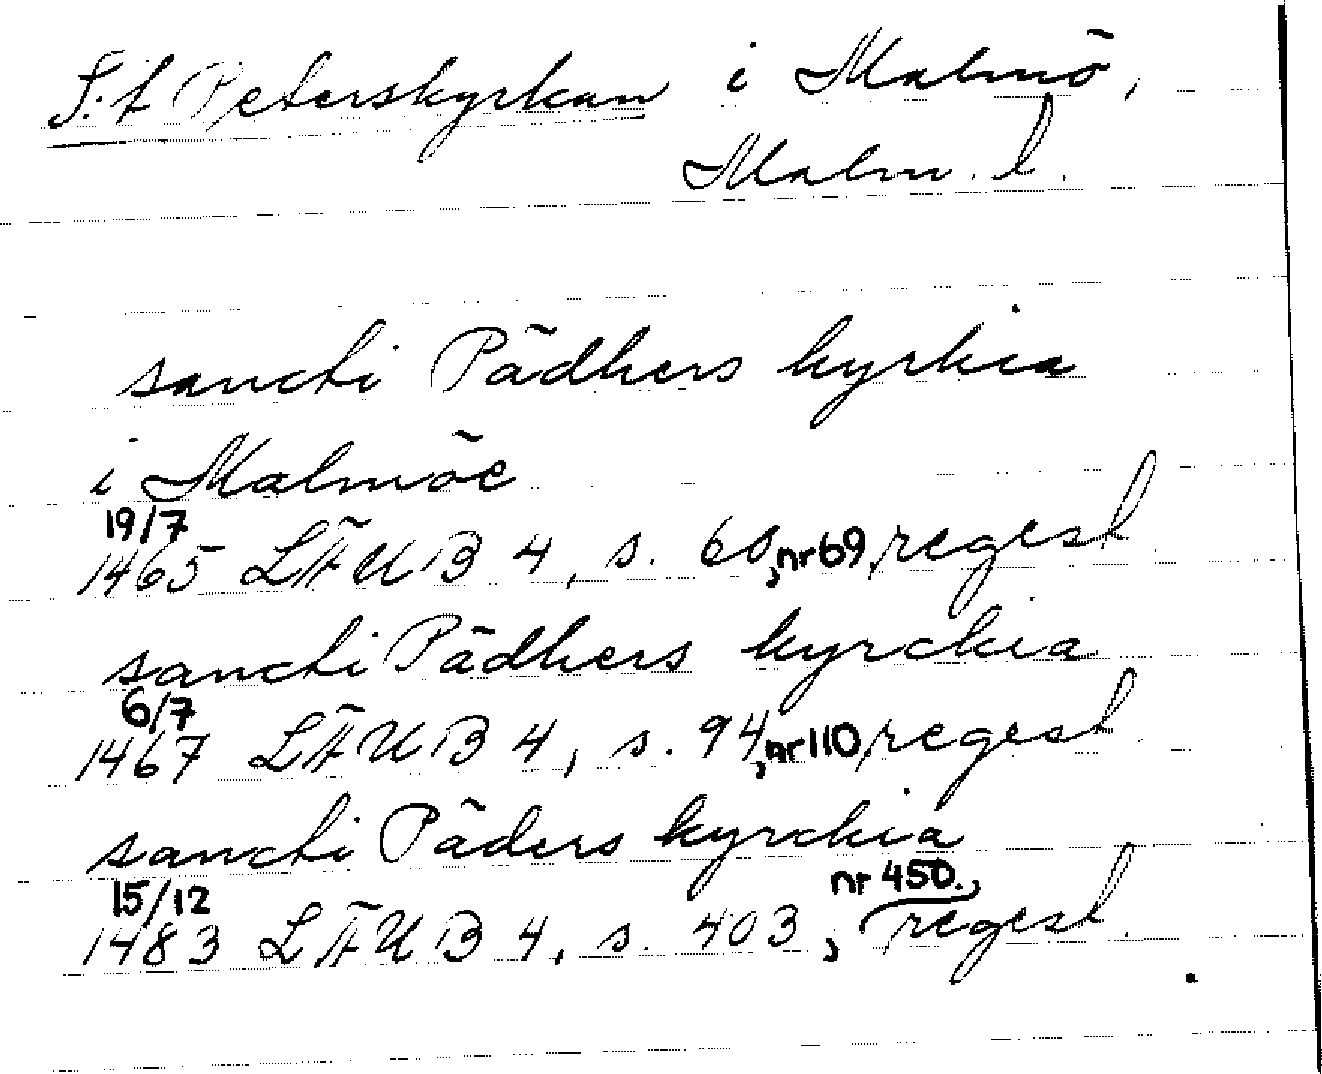 S:t Peterskyrkan i Malmö,
Malm. l.
sancti Pädhers kyrkia
i Malmöe
19/7
1465 LÄUB 4, s. 60, nr 69, regest
sancti Pädhers kyrckia
6/7
1467 LÄUB 4, s. 94, nr 110, regest
sancti Päders kyrckia
15/12 nr 450.,
1483 LÄUB 4, s. 403, regest.